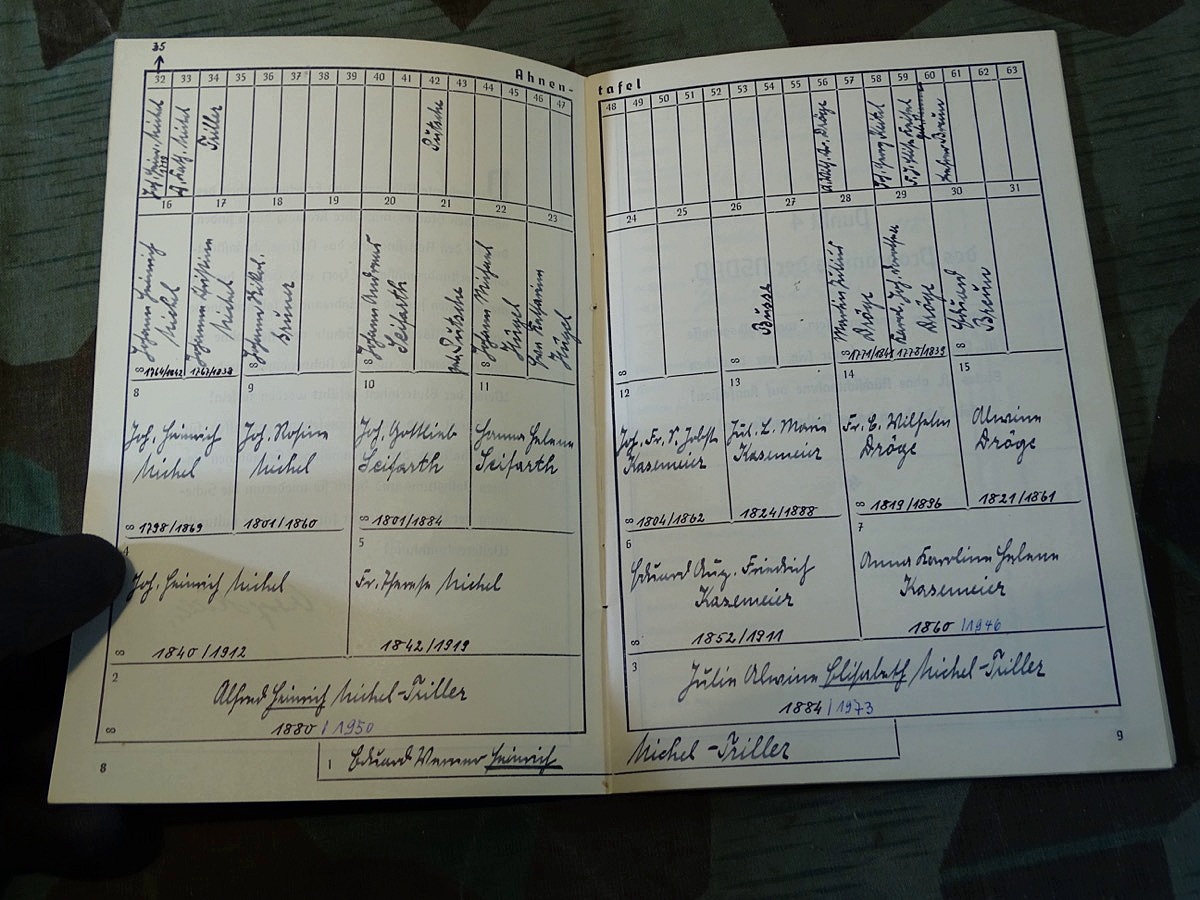 35
Ahnen-
32 33 34 35 36 37 38 39 40 41 42 43 44 45 46 47
Triller
Pütsche
16 17 18 19 20 21 22 23
Johann Heinrich
Michel
∞ 1764/1842
Johann Christian
Michel
1767/1838
Johann Nikol.
Bruner
∞
Johann Andreas
Seifarth
∞
geb. Pütsche
Johann Michael
Hügel
∞
Hügel
8
Joh. Heinrich
Michel
∞ 1798/1869
9
Joh. Rosine
Michel
1801/1860
10
Joh. Gottlieb
Seifarth
∞ 1801/1884
11
Hanna Helene
Seifarth
4
Joh. Heinrich Michel
∞ 1840/1912
5
Fr. Therese Michel
1842/1919
2
Alfred Heinrich Michel-Triller
∞ 1880/1950
1 Eduard Werner Heinrich
8
tafel
48 49 50 51 52 53 54 55 56 57 58 59 60 61 62 63
Dröge
24 25 26 27 28 29 30 31
∞
∞
Busse
Dröge
∞ 1771/1841
Dröge
1778/1839
∞
Breun
12
Joh. Fr. S. Jobst
Kasemeier
∞ 1804/1862
13
Jul. L. Marie
Kasemeier
1824/1888
14
Fr. C. Wilhelm
Dröge
∞ 1819/1896
15
Alwine
Dröge
1821/1861
6
Eduard Aug. Friedrich
Kasemeier
∞ 1852/1911
7
Anna Karoline Helene
Kasemeier
1860/1946
3
Julie Alwine Elisabeth Michel-Triller
1884/1973
Michel-Triller
9